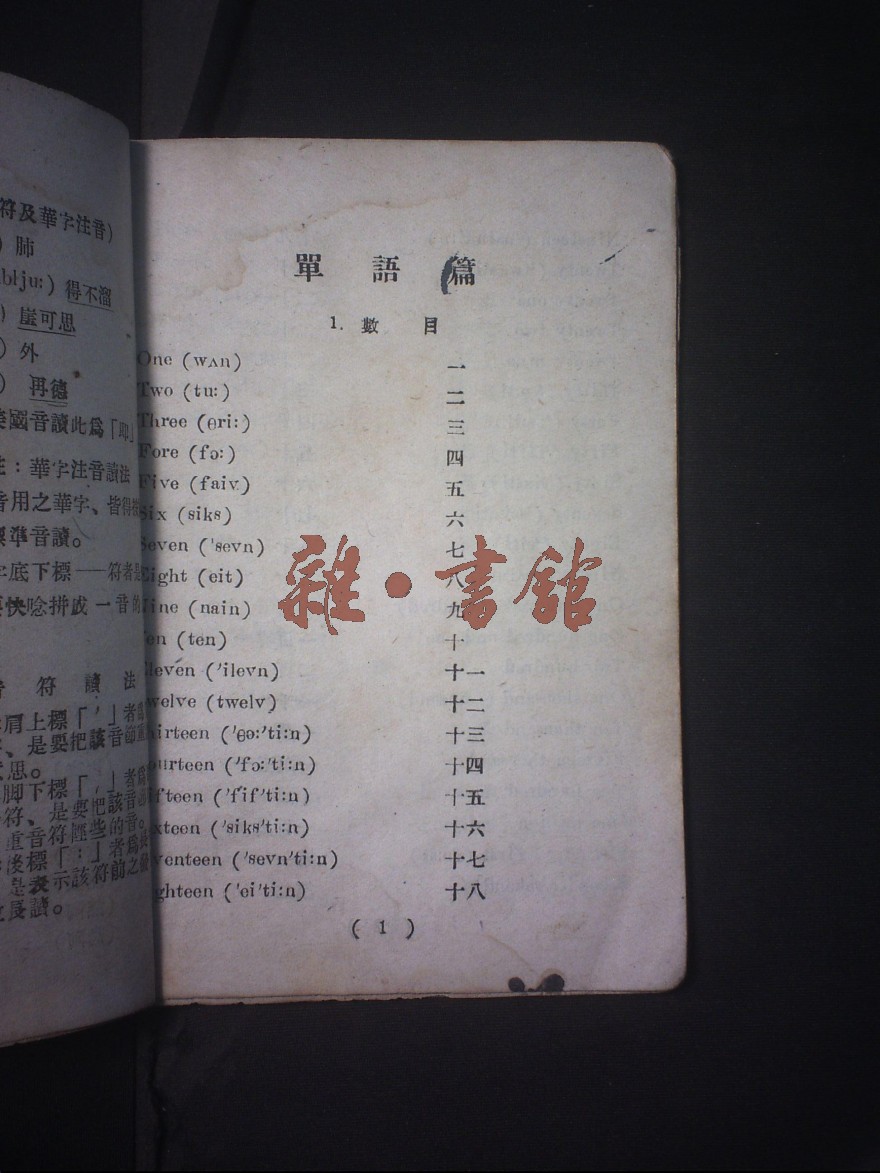 符及華字注音)
) 肺
blju:) 得不溜
) 崖可思
) 外
) 再德
國音讀此爲「
:華字注音讀法
音用之華字、皆得
準音讀。
字底下標—符者是
要快唸拼成一音的
音符讀法
肩上標「′」者爲
、是要把該音節
意思。
脚下標「,」者爲
符、是要把該音
重音符輕些的音。
後標「:」者爲
是表示該符前之
長讀。
單語篇
1. 數目
One (wʌn) 一
Two (tu:) 二
Three (θri:) 三
Fore (fɔ:) 四
Five (faiv) 五
Six (siks) 六
Seven ('sevn) 七
Eight (eit) 八
ine (nain) 九
en (ten) 十
leven ('ilevn) 十一
welve (twelv) 十二
hirteen ('θə:'ti:n) 十三
ourteen ('fɔ:'ti:n) 十四
ifteen ('fif'ti:n) 十五
xteen ('siks'ti:n) 十六
venteen ('sevn'ti:n) 十七
ghteen ('ei'ti:n) 十八
( 1 )
雜·書館